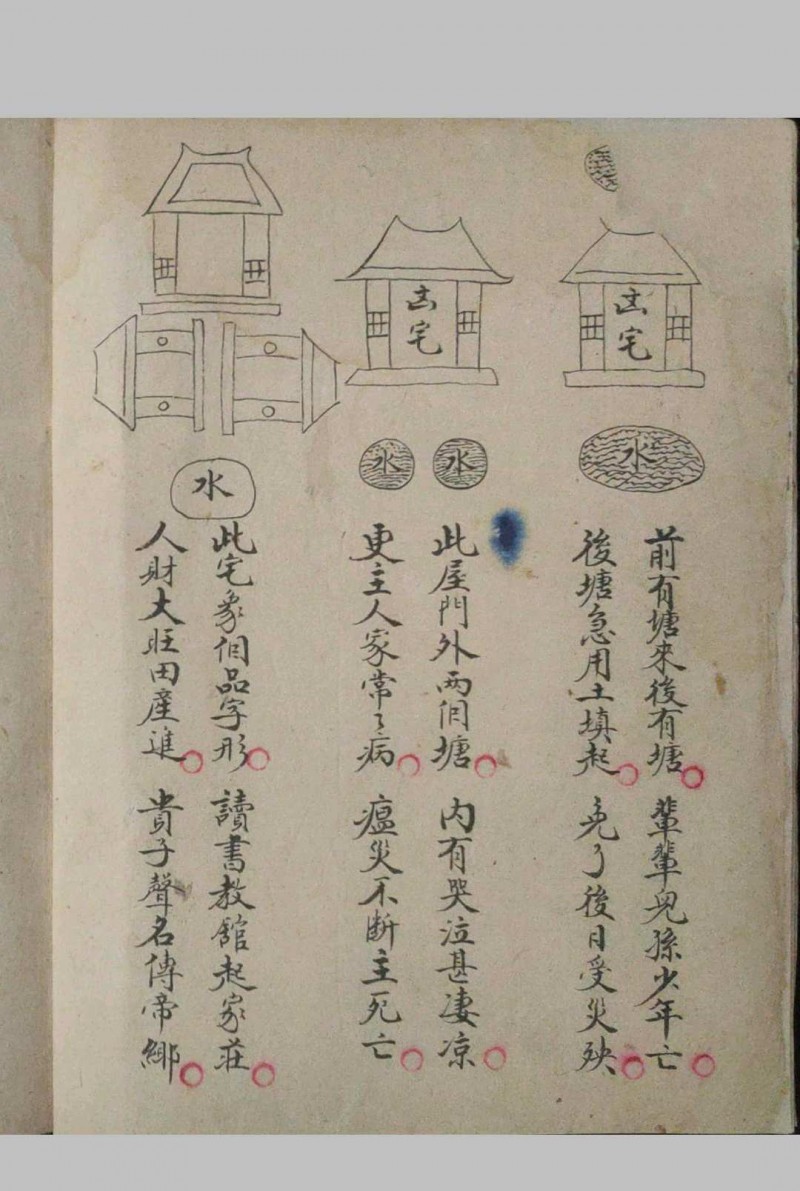 凶宅
水
前有塘來後有塘
輩輩兒孫少年亡
後塘急用土填起
免了後日受災殃
凶宅
水
水
此屋門外両個塘
内有哭泣甚凄凉
更主人家常々病
瘟災不断主死亡
水
此宅象個品字形
讀書教舘起家莊
人財大旺田産進
貴子聲名傳帝鄉